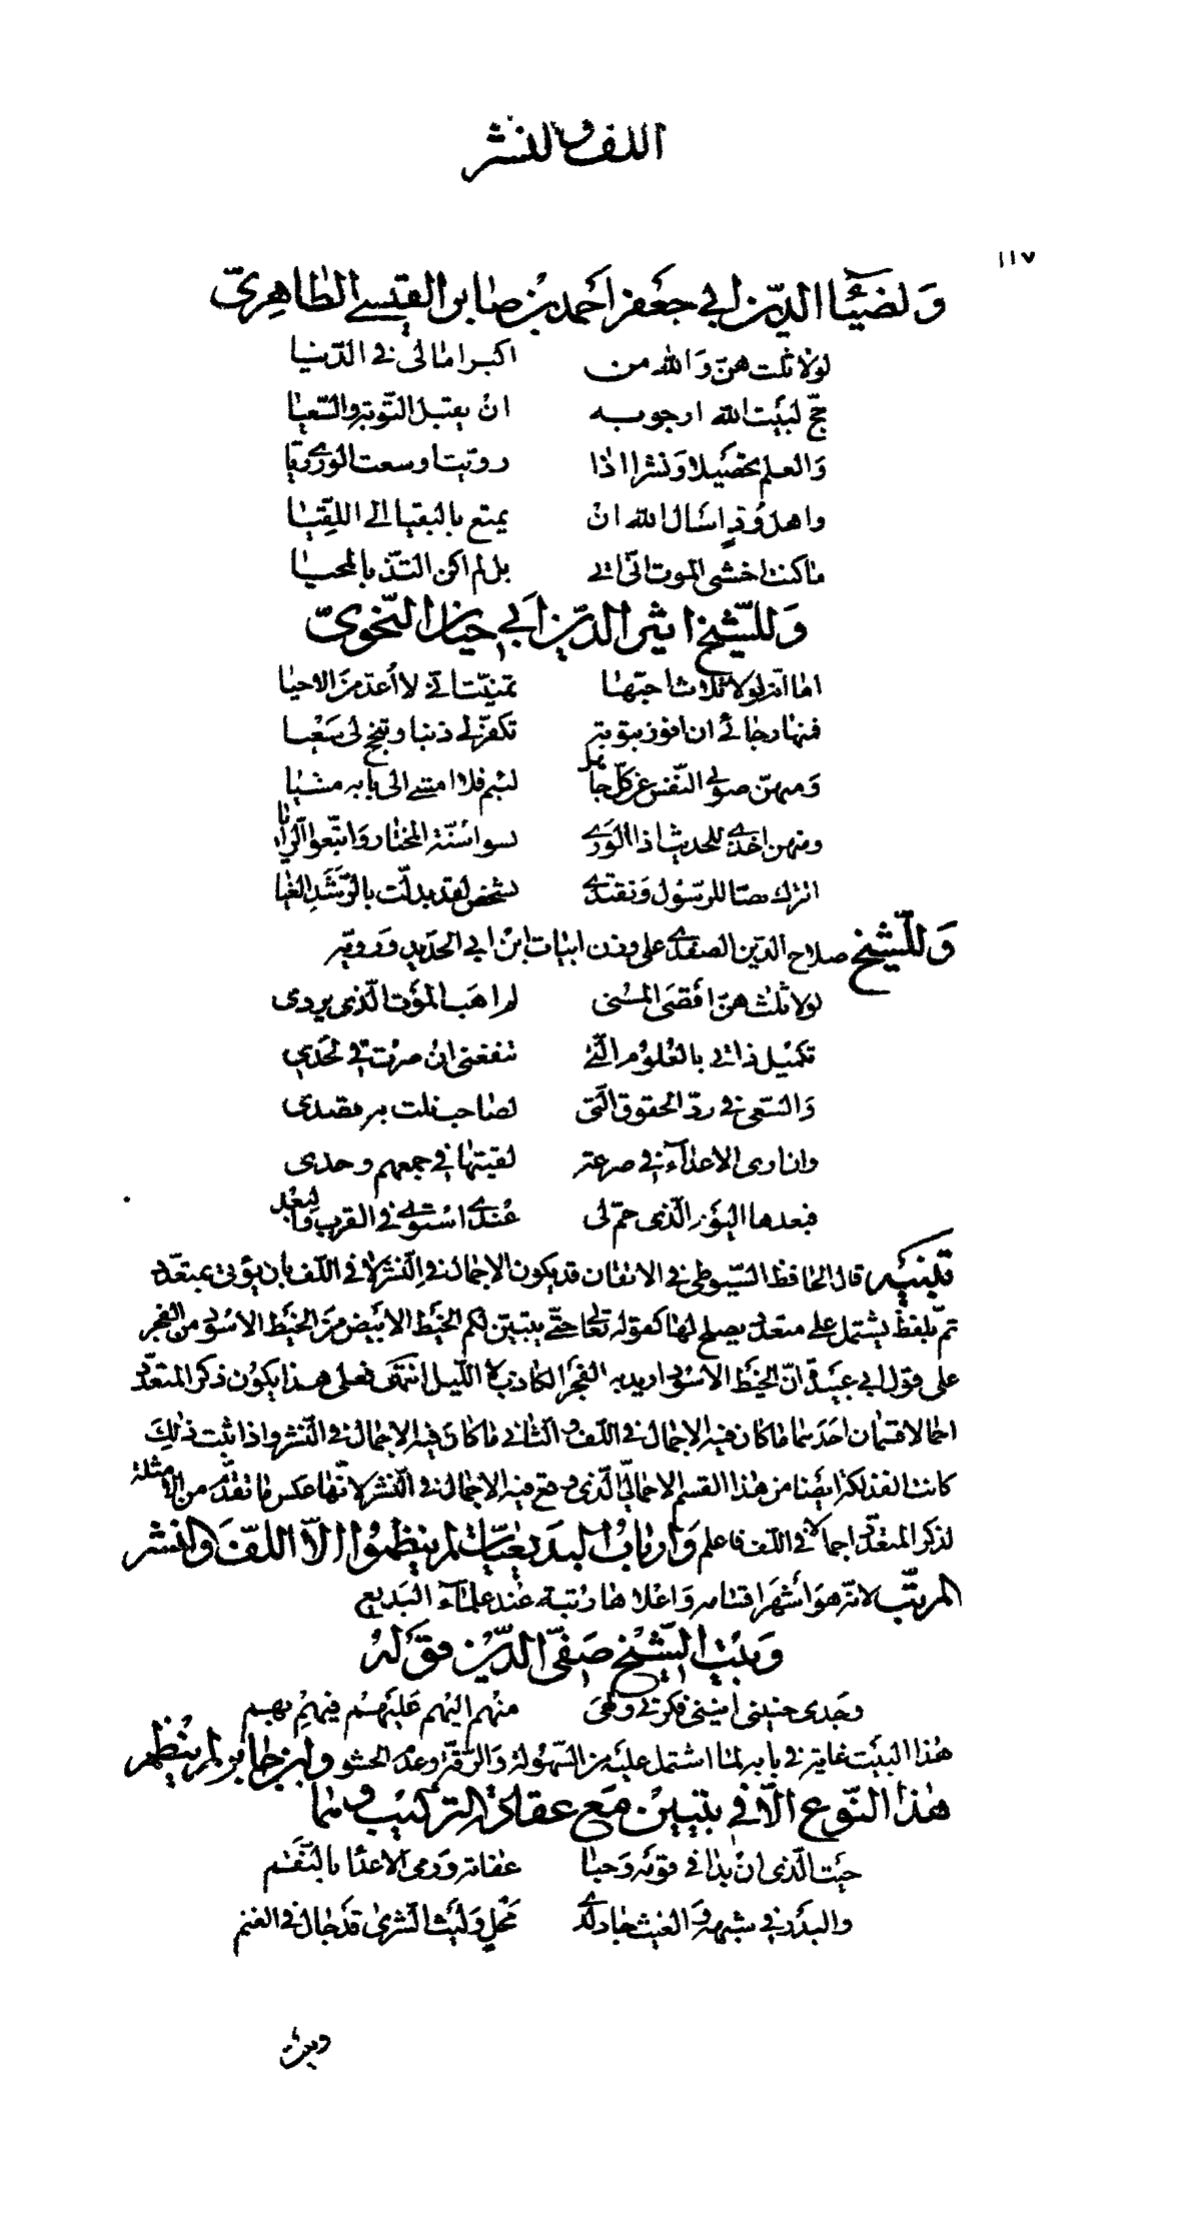 اللف والنشر
١١٧
وَلضيَاء الدّين ابي جعَفر احَمد بنْ صَابر القيسي الظاهِريّ
لولا ثلث هنّ وَالله من اكبر امالى فى الدّنيا
حجّ لبيَت الله ارجو به انْ يقبل التّوبة والسّعيا
وَالعلم تحصَيلا وَنشرا اذا رويت اوسعت الورى ريّا
واهل وُدٍّ اسَال الله انْ يمتع بالبقيا الى اللقيا
ما كنت اخشى الموت انّى اتى بل لم اكن التذّ بالمحيا
وَللشّيخ اثير الدّين ابَي حيان النّحويّ
اما انّه لولا ثلاث احبّها تمنيّت انى لا أُعدّ مِنَ الاحيا
فمنها رجائي ان افوز بتوبة تكفرّ لى ذنبا وتنجح لى سَعْيا
وَمنهنّ صونى النّفس عن كلّ جاهل لئيم فلا امشى الى بابه مشيا
ومنهن اخذى للحديث اذا الورَى نسوا سُنّة المختار وَاتّبعوا الرايا
اتترك نصّا للرسّول وَنقتدى بشخص لقد بدلّت بالرّشَدِ الغيا
وَللشّيخ صلاح الدّين الصفدى على وزن ابيات ابنْ ابي الحدَيد وَرويّه
لولا ثلث هنّ اقَصَى المُنى لم اهَب المؤت الّذى يردى
تكميل ذاتى بالعُلومِ الّتى تنفعنى انْ صرت في لحَدي
وَالسّعى فى ردّ الحقوق الّتى لصَاحب نلت به قصدى
وان ارى الاعدآء في صرعة لقيتهَا في جمعهم وحدى
فبعدها اليوَم الّذى حمّ لى عنْدى اسْتوى في القرب وَالبعْد
تنبيه قال الحَافظ السّيوطى فى الاتقان قد يكون الاجمال فى النّشر لا في اللّف بان يؤتى بمتعدّد
ثمّ بلفظ يشتمل على متعدّد يصلح لهما كقوله تعالى حتّى يتبيّن لكم الخيَط الابَيض مِنَ الخيَط الاسْود من الفجر
على قول ابي عبيَدة انّ الخيَط الاسْود اريد به الفجَر الكاذب لا اللّيل انتهَى فعلى هذا يكوُن ذكر المتعدّد
اجمالا قسمان احَدهما ما كان فيه الاجمال فى اللّف والثانى ما كان فيه الاجمال فى النّشر واذا ثبت ذلِك
كانت الفذلكة ايضَا من هذا القسم الاجماليّ الّذى وقع فيه الاجمال فى النّشر لانّها عكس ما تقدّم من الامثلة
لذكر المتعدّد اجمالا فى اللّف فاعلم وَارباب البدَيعيات لم ينظموُا الاّ اللفّ والنشر
المرتّب لانّه هوَ اشَهر اقسامه وَاعلاها رتبة عنْد علمآء البَديع
وَبيْت الشّيْخ صَفيّ الدّيْن قوَلهُ
وجَدى حنينى انينى فكرتى وَلهى منهُم اليْهم عَليَهم فيهمُ بهم
هذا البيَت غاية في بابه لما اشتمل عليَه من السّهولة وَالرّقة وعدم الحشو وابن جابر لم ينْظم
هذا النّوع الاّ في بيتيْن مَع عقادة التركيْب وهما
حيَث الّذى انْ بدا في قومَه وَحبا عفاته ورَمى الاعدا بالنّقم
والبدَر في شبهه وَالغيث جاد لذى محَل وَليث الشّرى قدَ جال فى الغنم
وبيت